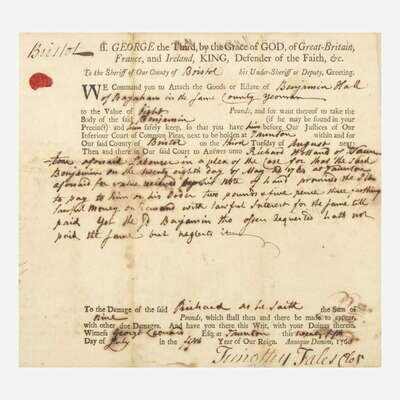 Bristol ss. GEORGE the Third, by the Grace of GOD, of Great-Britain,
France, and Ireland, KING, Defender of the Faith, &c.
To the Sheriff of Our County of Bristol his Under-Sheriff or Deputy, Greeting.
WE Command you to Attach the Goods or Estate of Benjamin Hall
of Raynham in the same County Yeoman
to the Value of Eight Pounds, and for want thereof to take the
Body of the said Benjamin (if he may be found in your
Precinct) and him safely keep, so that you have him before Our Justices of Our
Inferiour Court of Common Pleas, next to be holden at Taunton within and for
Our said County of Bristol on the third Tuesday of August next
Then and there in Our said Court to Answer unto Richard of Taun
ton aforesaid in a plea of the Case for that the Said
Benjamin on the twenty eighth day of May at Taunton
aforesaid for value received by his Note of hand promised the
to pay to him or his order two pounds five pence three farthings
lawful Money on demand with lawful Interest for the same till
paid Yet the sd Benjamin tho often requested hath not
paid the same but neglects it
To the Damage of the said Richard as he saith the Sum of
Nine Pounds, which shall then and there be made to appear,
with other due Damages. And have you there this Writ, with your Doings therein.
Witness George Leonard Esq; at Taunton this twenty fifth
Day of July in the fifth Year of Our Reign. Annoque Domini, 176
Timothy Fales Cler